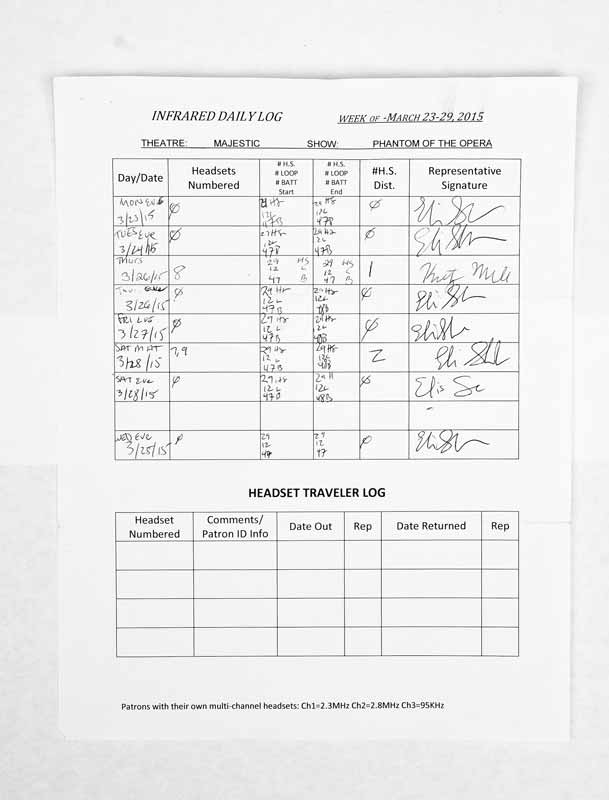 INFRARED DAILY LOG WEEK OF -MARCH 23-29, 2015
THEATRE: MAJESTIC SHOW: PHANTOM OF THE OPERA
Day/Date Headsets Numbered # H.S. # LOOP # BATT Start # H.S. # LOOP # BATT End #H.S. Dist. Representative Signature
MON EVE 3/23/15 Ø 29 HS 12L 47B 29 HS 12L 47B Ø
TUES EVE 3/24/15 Ø 29 HS 12L 47B 29 HS 12L 47B Ø
THURS 3/26/15 8 29 HS 12 L 47 B 29 HS 12 L 47 B 1
3/26/15 Ø 29 HS 12L 47B 29 HS 12L 48B Ø
FRI EVE 3/27/15 Ø 29 HS 12L 47B 29 HS 12L 48B Ø
SAT MAT 3/28/15 7,9 29 HS 12L 47B 29 HS 12L 48B 2
SAT EVE 3/28/15 Ø 29 HS 12L 47B 29 H 12L 48B Ø
WED EVE 3/25/15 Ø 29 12 47 29 12 47 Ø
HEADSET TRAVELER LOG
Headset Numbered Comments/ Patron ID Info Date Out Rep Date Returned Rep
Patrons with their own multi-channel headsets: Ch1=2.3MHz Ch2=2.8MHz Ch3=95KHz